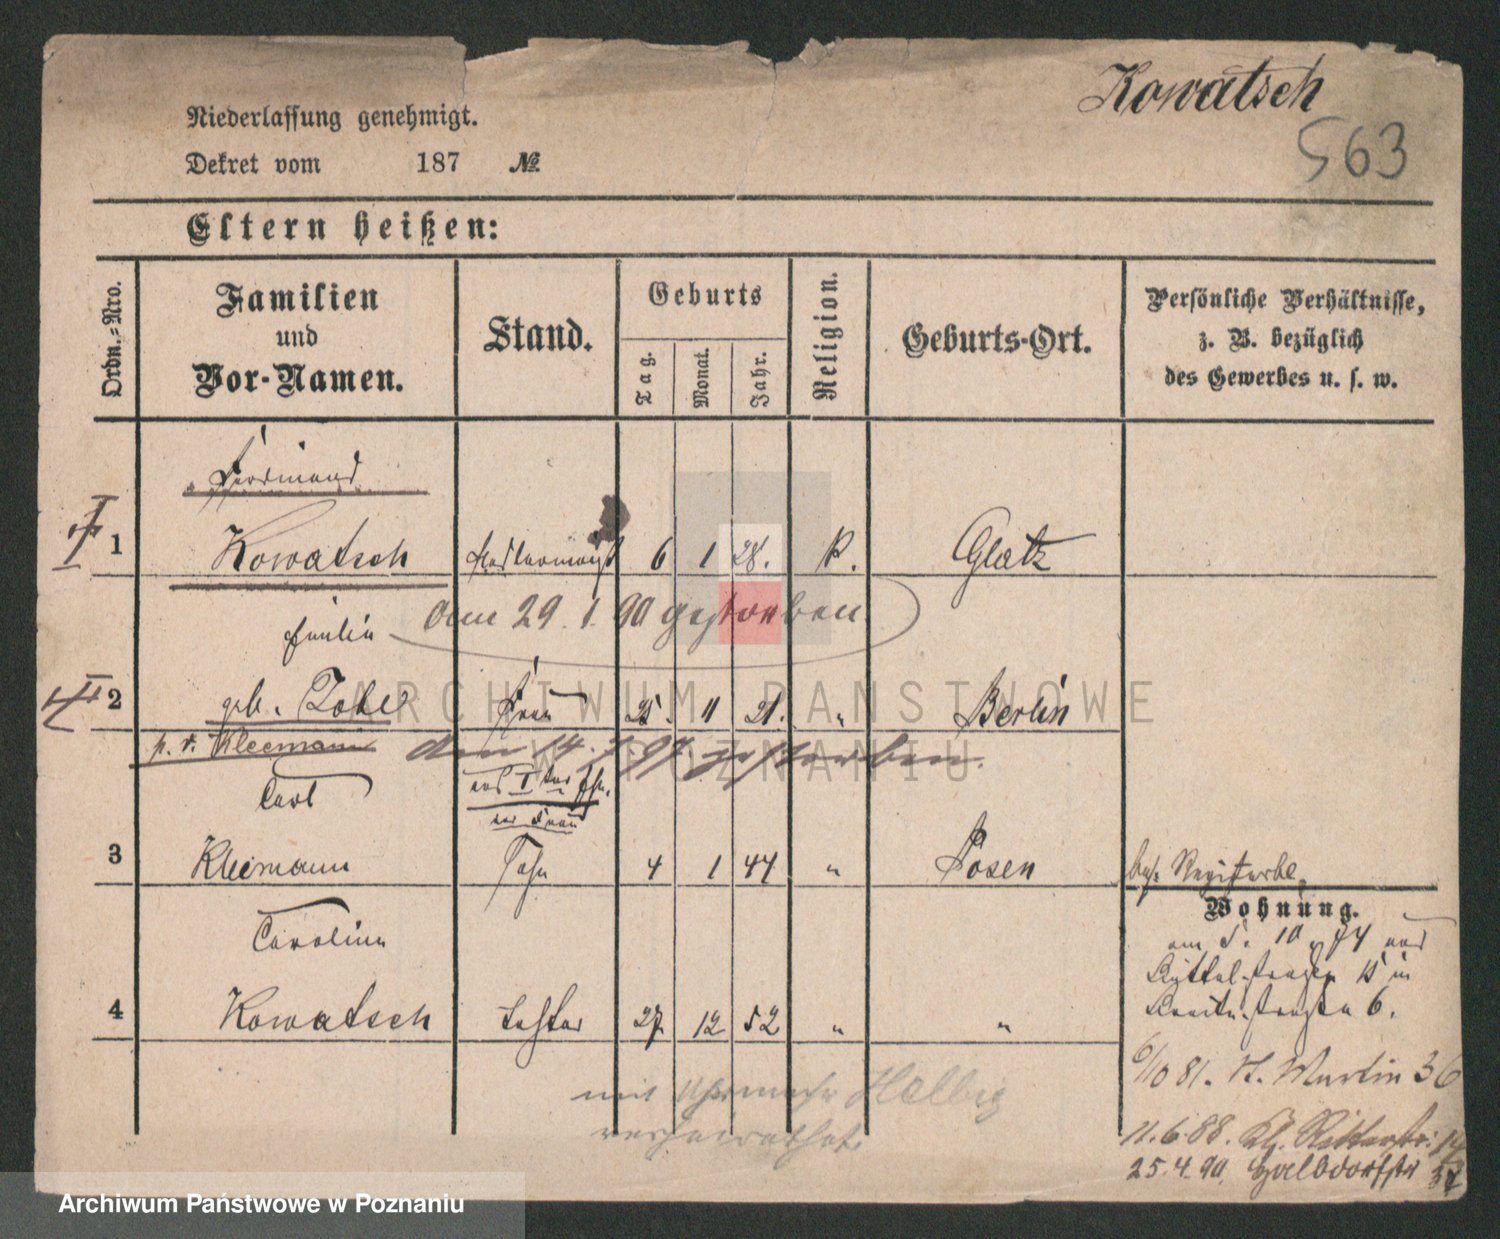 Kowatsch
563
Niederlassung genehmigt.
Dekret vom 187 №
Eltern heißen:
Ordn.=Nro.
Familien
und
Vor-Namen.
Stand.
Geburts
Tag.
Monat.
Jahr.
Religion.
Geburts-Ort.
Persönliche Verhältnisse,
z. B. bezüglich
des Gewerbes u. s. w.
Ferdinand
I
1 Kowatsch 6 1 28. K. Glatz
am 29. 1. 90 gestorben
II
2 geb. Zobel Frau 25. 11 21. " Berlin
p. v. Kleemann den 14. 7 97. gestorben.
aus I ter Ehe.
der Frau
Carl
3 Kleemann Sohn 4 1 44 " Posen
Wohnung.
Caroline
am 5. 10 74 von
4 Kowatsch Tochter 27 12 52 " "
Breitestraße 6.
6/10 81. St. Martin 36
mit Helbig
verheirathet.
11.6.88. Kl. Ritterstr.
25.4.90.
ARCHIWUM PAŃSTWOWE
W POZNANIU
Archiwum Państwowe w Poznaniu